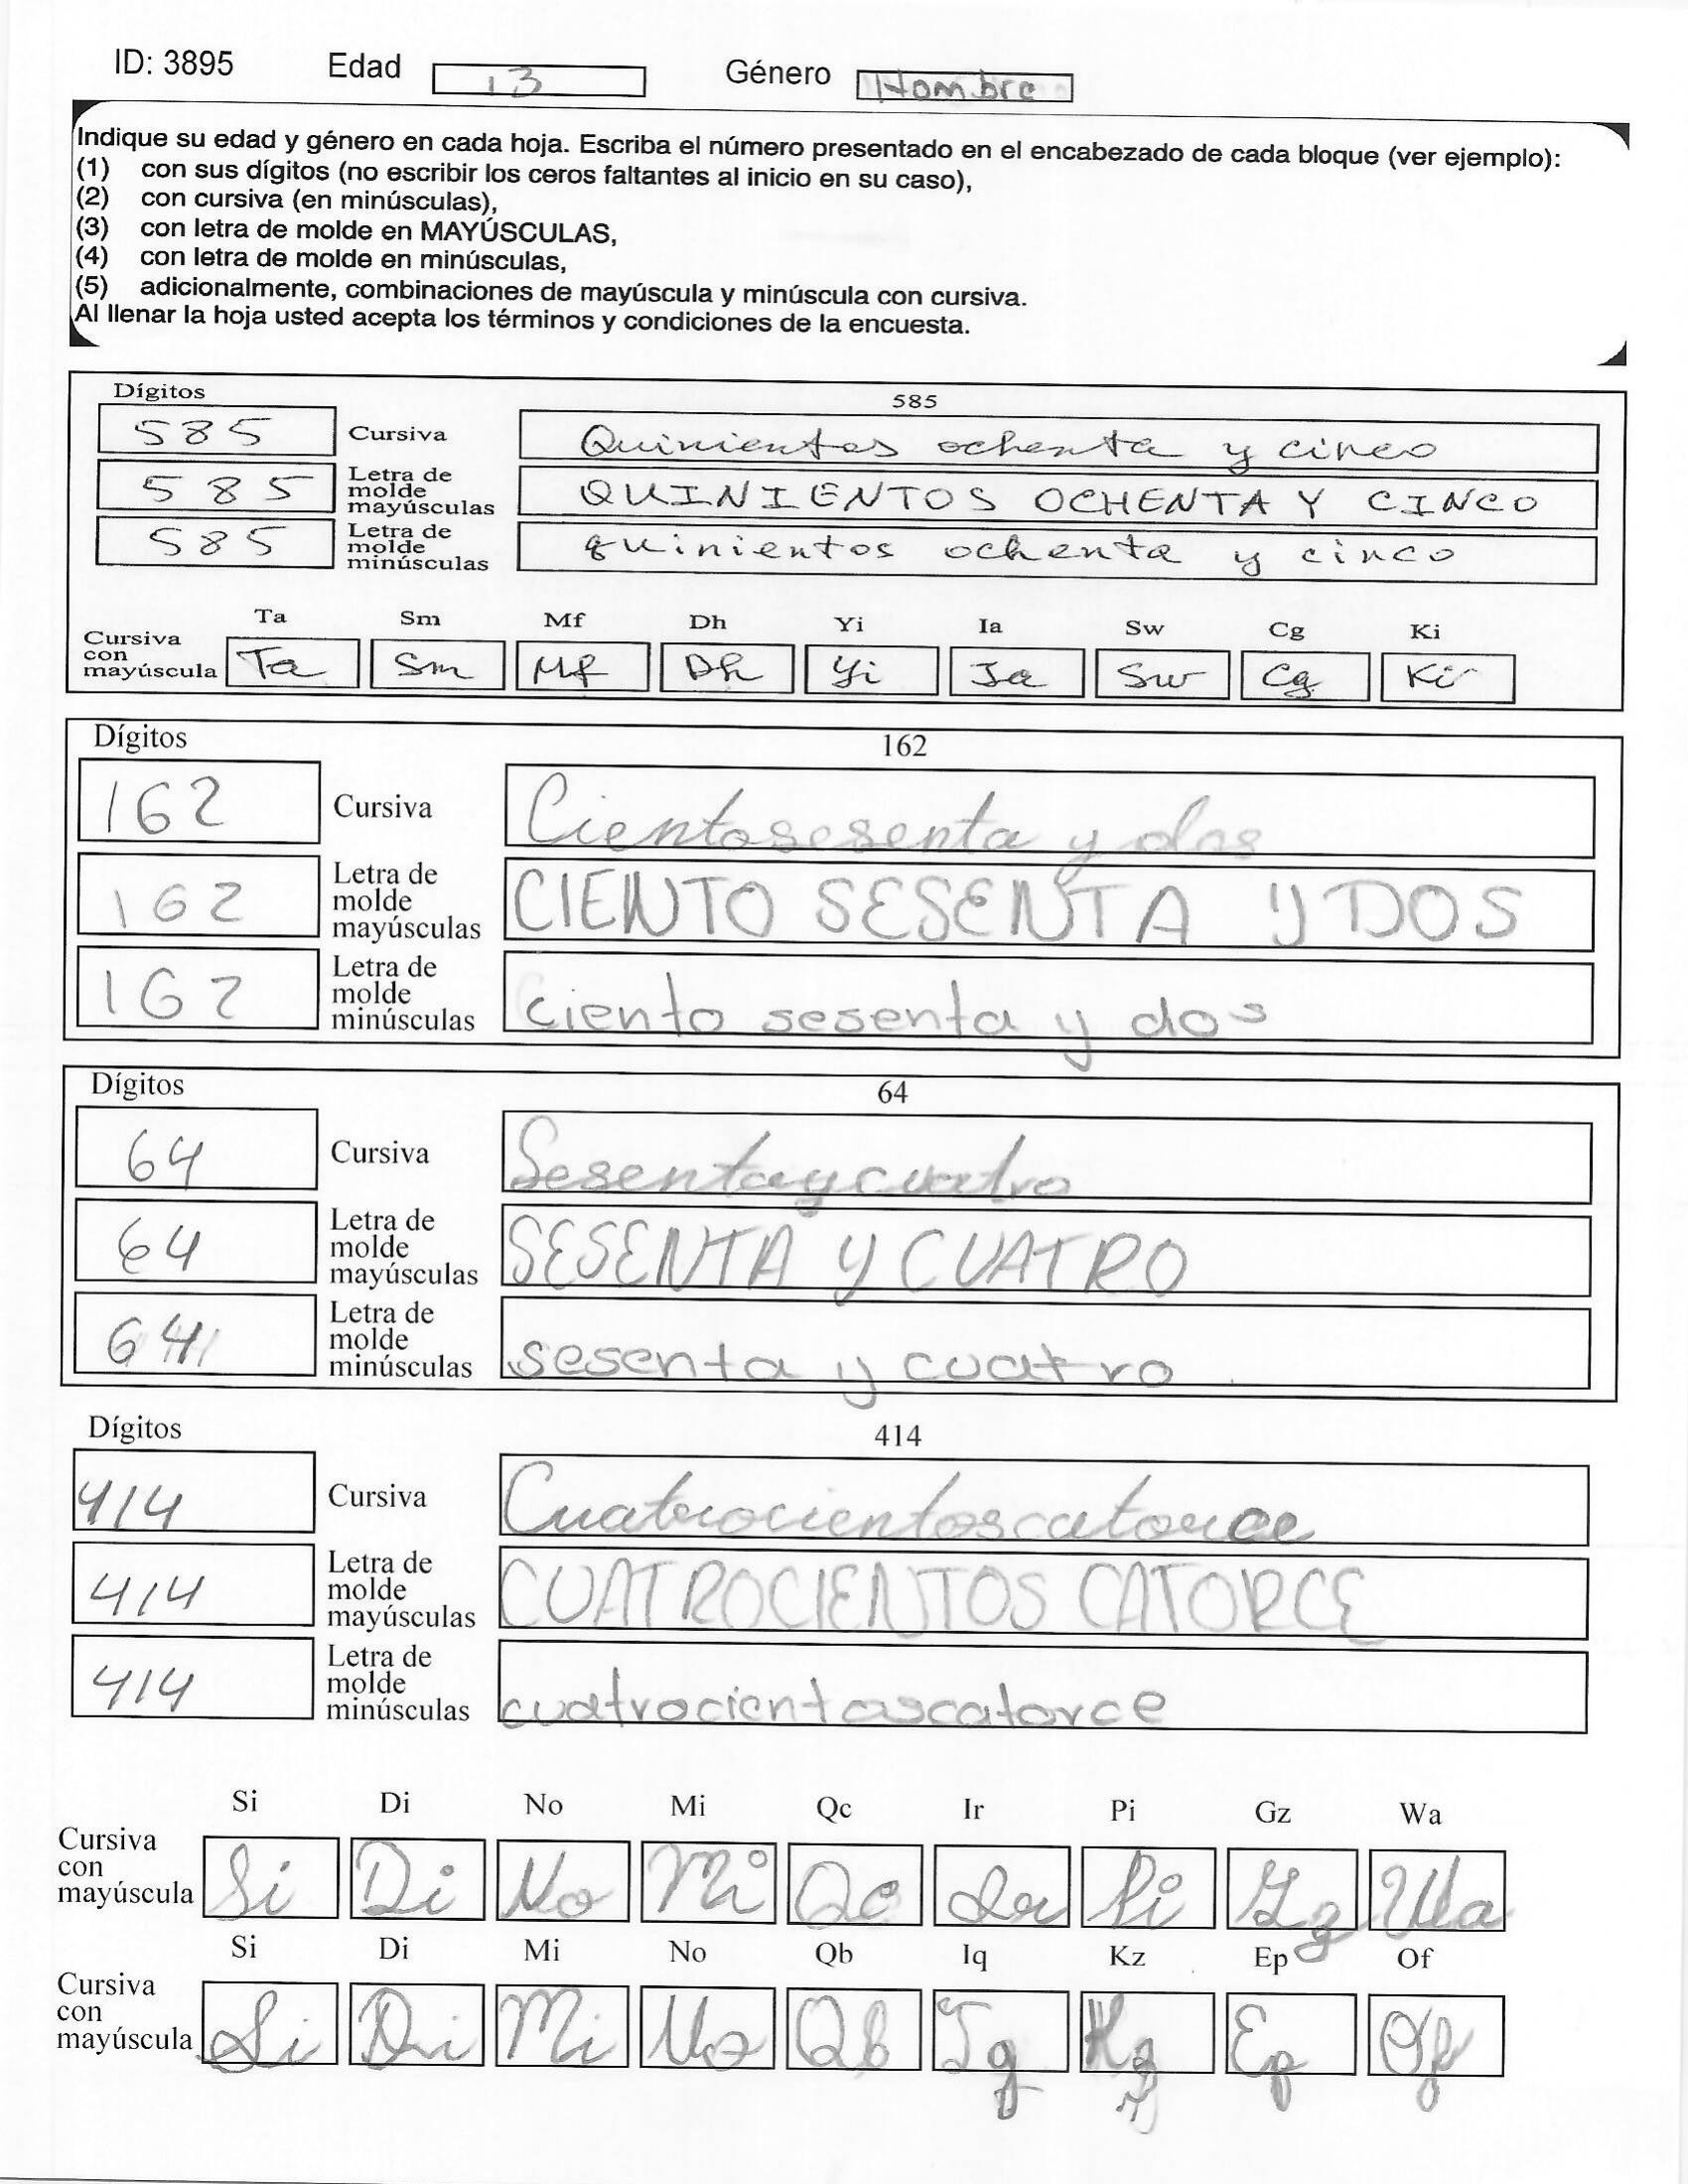 ID: 3895 Edad 13 Género Hombre
Indique su edad y género en cada hoja. Escriba el número presentado en el encabezado de cada bloque (ver ejemplo):
(1) con sus dígitos (no escribir los ceros faltantes al inicio en su caso),
(2) con cursiva (en minúsculas),
(3) con letra de molde en MAYÚSCULAS,
(4) con letra de molde en minúsculas,
(5) adicionalmente, combinaciones de mayúscula y minúscula con cursiva.
Al llenar la hoja usted acepta los términos y condiciones de la encuesta.
Dígitos 585
585 Cursiva Quinientos ochenta y cinco
585 Letra de molde mayúsculas QUINIENTOS OCHENTA Y CINCO
585 Letra de molde minúsculas quinientos ochenta y cinco
Ta Sm Mf Dh Yi Ia Sw Cg Ki
Cursiva con mayúscula Ta Sm Mf Dh Yi Ia Sw Cg Ki
Dígitos 162
162 Cursiva Ciento sesenta y dos
162 Letra de molde mayúsculas CIENTO SESENTA Y DOS
162 Letra de molde minúsculas ciento sesenta y dos
Dígitos 64
64 Cursiva Sesenta y cuatro
64 Letra de molde mayúsculas SESENTA Y CUATRO
64 Letra de molde minúsculas sesenta y cuatro
Dígitos 414
414 Cursiva Cuatrocientos catorce
414 Letra de molde mayúsculas CUATROCIENTOS CATORCE
414 Letra de molde minúsculas cuatrocientos catorce
Si Di No Mi Qc Ir Pi Gz Wa
Cursiva con mayúscula Si Di No Mi Qc Ir Pi Gz Wa
Si Di Mi No Qb Iq Kz Ep Of
Cursiva con mayúscula Si Di Mi No Qb Iq Kz Ep Of